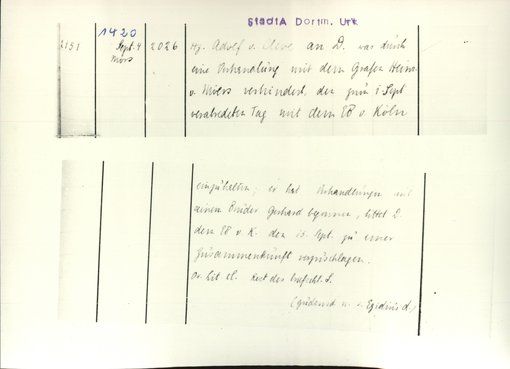 StadtA Dortm. Urk.
1420
2151 Sept. 4 2026 Hg. Adolf v. Cleve an D. war durch
Mörs eine Verhandlung mit dem Grafen Heinr.
v. Moers verhindert, den zum 1 Sept
verabredeten Tag mit dem EB v. Köln
einzuhalten; er hat Verhandlungen mit
seinem Bruder Gerhard begonnen, bittet D.
dem EB v. K. den 15. Sept. zu einer
Zusammenkunft vorzuschlagen.
Or. Lit cl. Rest des briefschl. S.